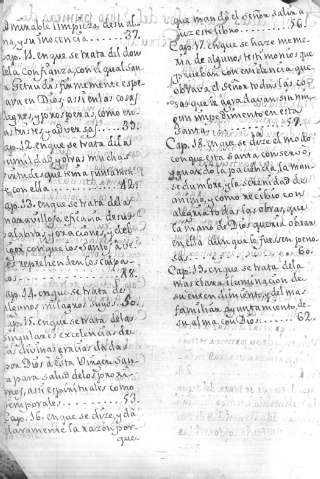 admirable limpieza, de su al
ma, y su inocencia ........ 37.
Cap. 11. en que se trata del don
de la Confianza, con el qual san
ta Getrudis firmemente espe
rava en Dios, assi en las cosas
alegres, y prosperas, como en
las tristes, y adversas ..... 39.
Cap. 12. en que se trata de la
humildad, y otras muchas
virtudes que tenia
con ella ............ 42.
Cap. 13. en que se trata de la
maravillosa eficacia de sus
palabras, y oraciones, y del
con que los santos
reprehenden los culpa
dos ............ 48.
Cap. 14. en que se trata de
algunos milagros suyos. 50.
Cap. 15. en que se trata de las
singulares excelencias de
las divinas gracias dadas
por Dios a esta Virgen san
ta para salud de los proxi
mos, assi espirituales como
temporales ......... 53.
Cap. 16. en que se dize, y da
claramente la razon por
que
que mandò el señor salir a
luz este libro ....... 56.
Cap. 17. en que se haze memo
ria de algunos testimonios que
prueban con evidencia que
obrava el Señor todas las co
sas que
impedimento en esta
santa ............ 59.
Cap. 18. en que se dize el modo
con que esta santa conservò,
y guardò la paciencia, la man
sedumbre, y la serenidad de
animo, y como recibio con
alegria todas las obras, que
la mano de Dios queria obrar
en ella aunque le fuessen peno
sas ............ 60.
Cap. 19. en que se trata de la
mas clara iluminacion de
su entendimiento, y del mas
familiar ayuntamiento de
su alma con Dios ..... 62.